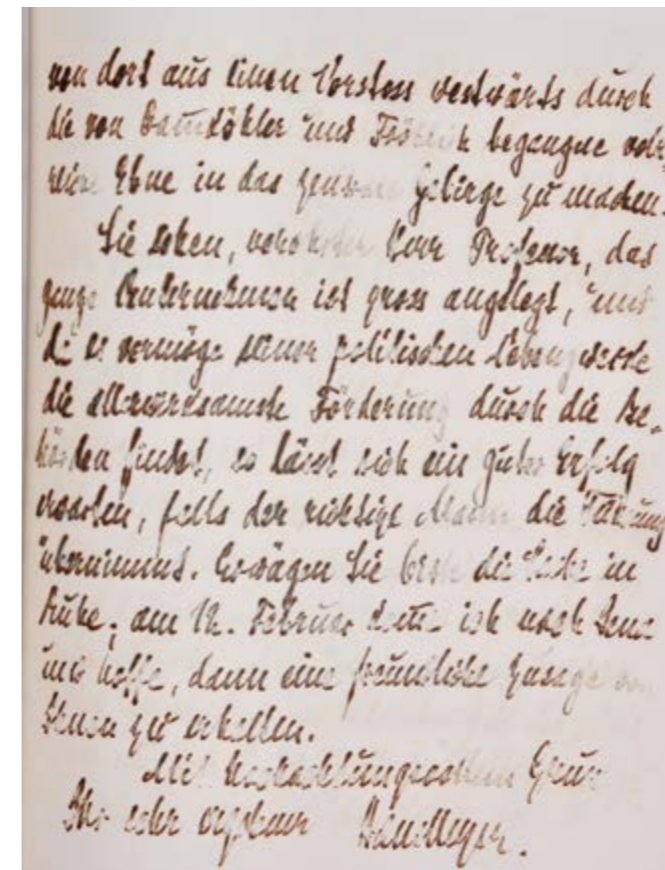 von dort aus einen Vorstoss westwärts durch
die von und Fröhlich begangne
Ebne in das Gebirge zu machen.
Sie sehen, verehrter Herr Professor, das
ganze Unternehmen ist gross angelegt, und
da es vermöge seiner politischen
die allerwirksamste Förderung durch die Be-
hörden findet, so lässt sich ein guter Erfolg
erwarten, falls der richtige Mann die Führung
übernimmt. Erwägen Sie bitte die Sache in
Ruhe; am 12. Februar komme ich nach Jena
und hoffe, dann eine freundliche Zusage von
Ihnen zu erhalten.
Mit hochachtungsvollem Gruss
Ihr sehr ergebener Hans Meyer.